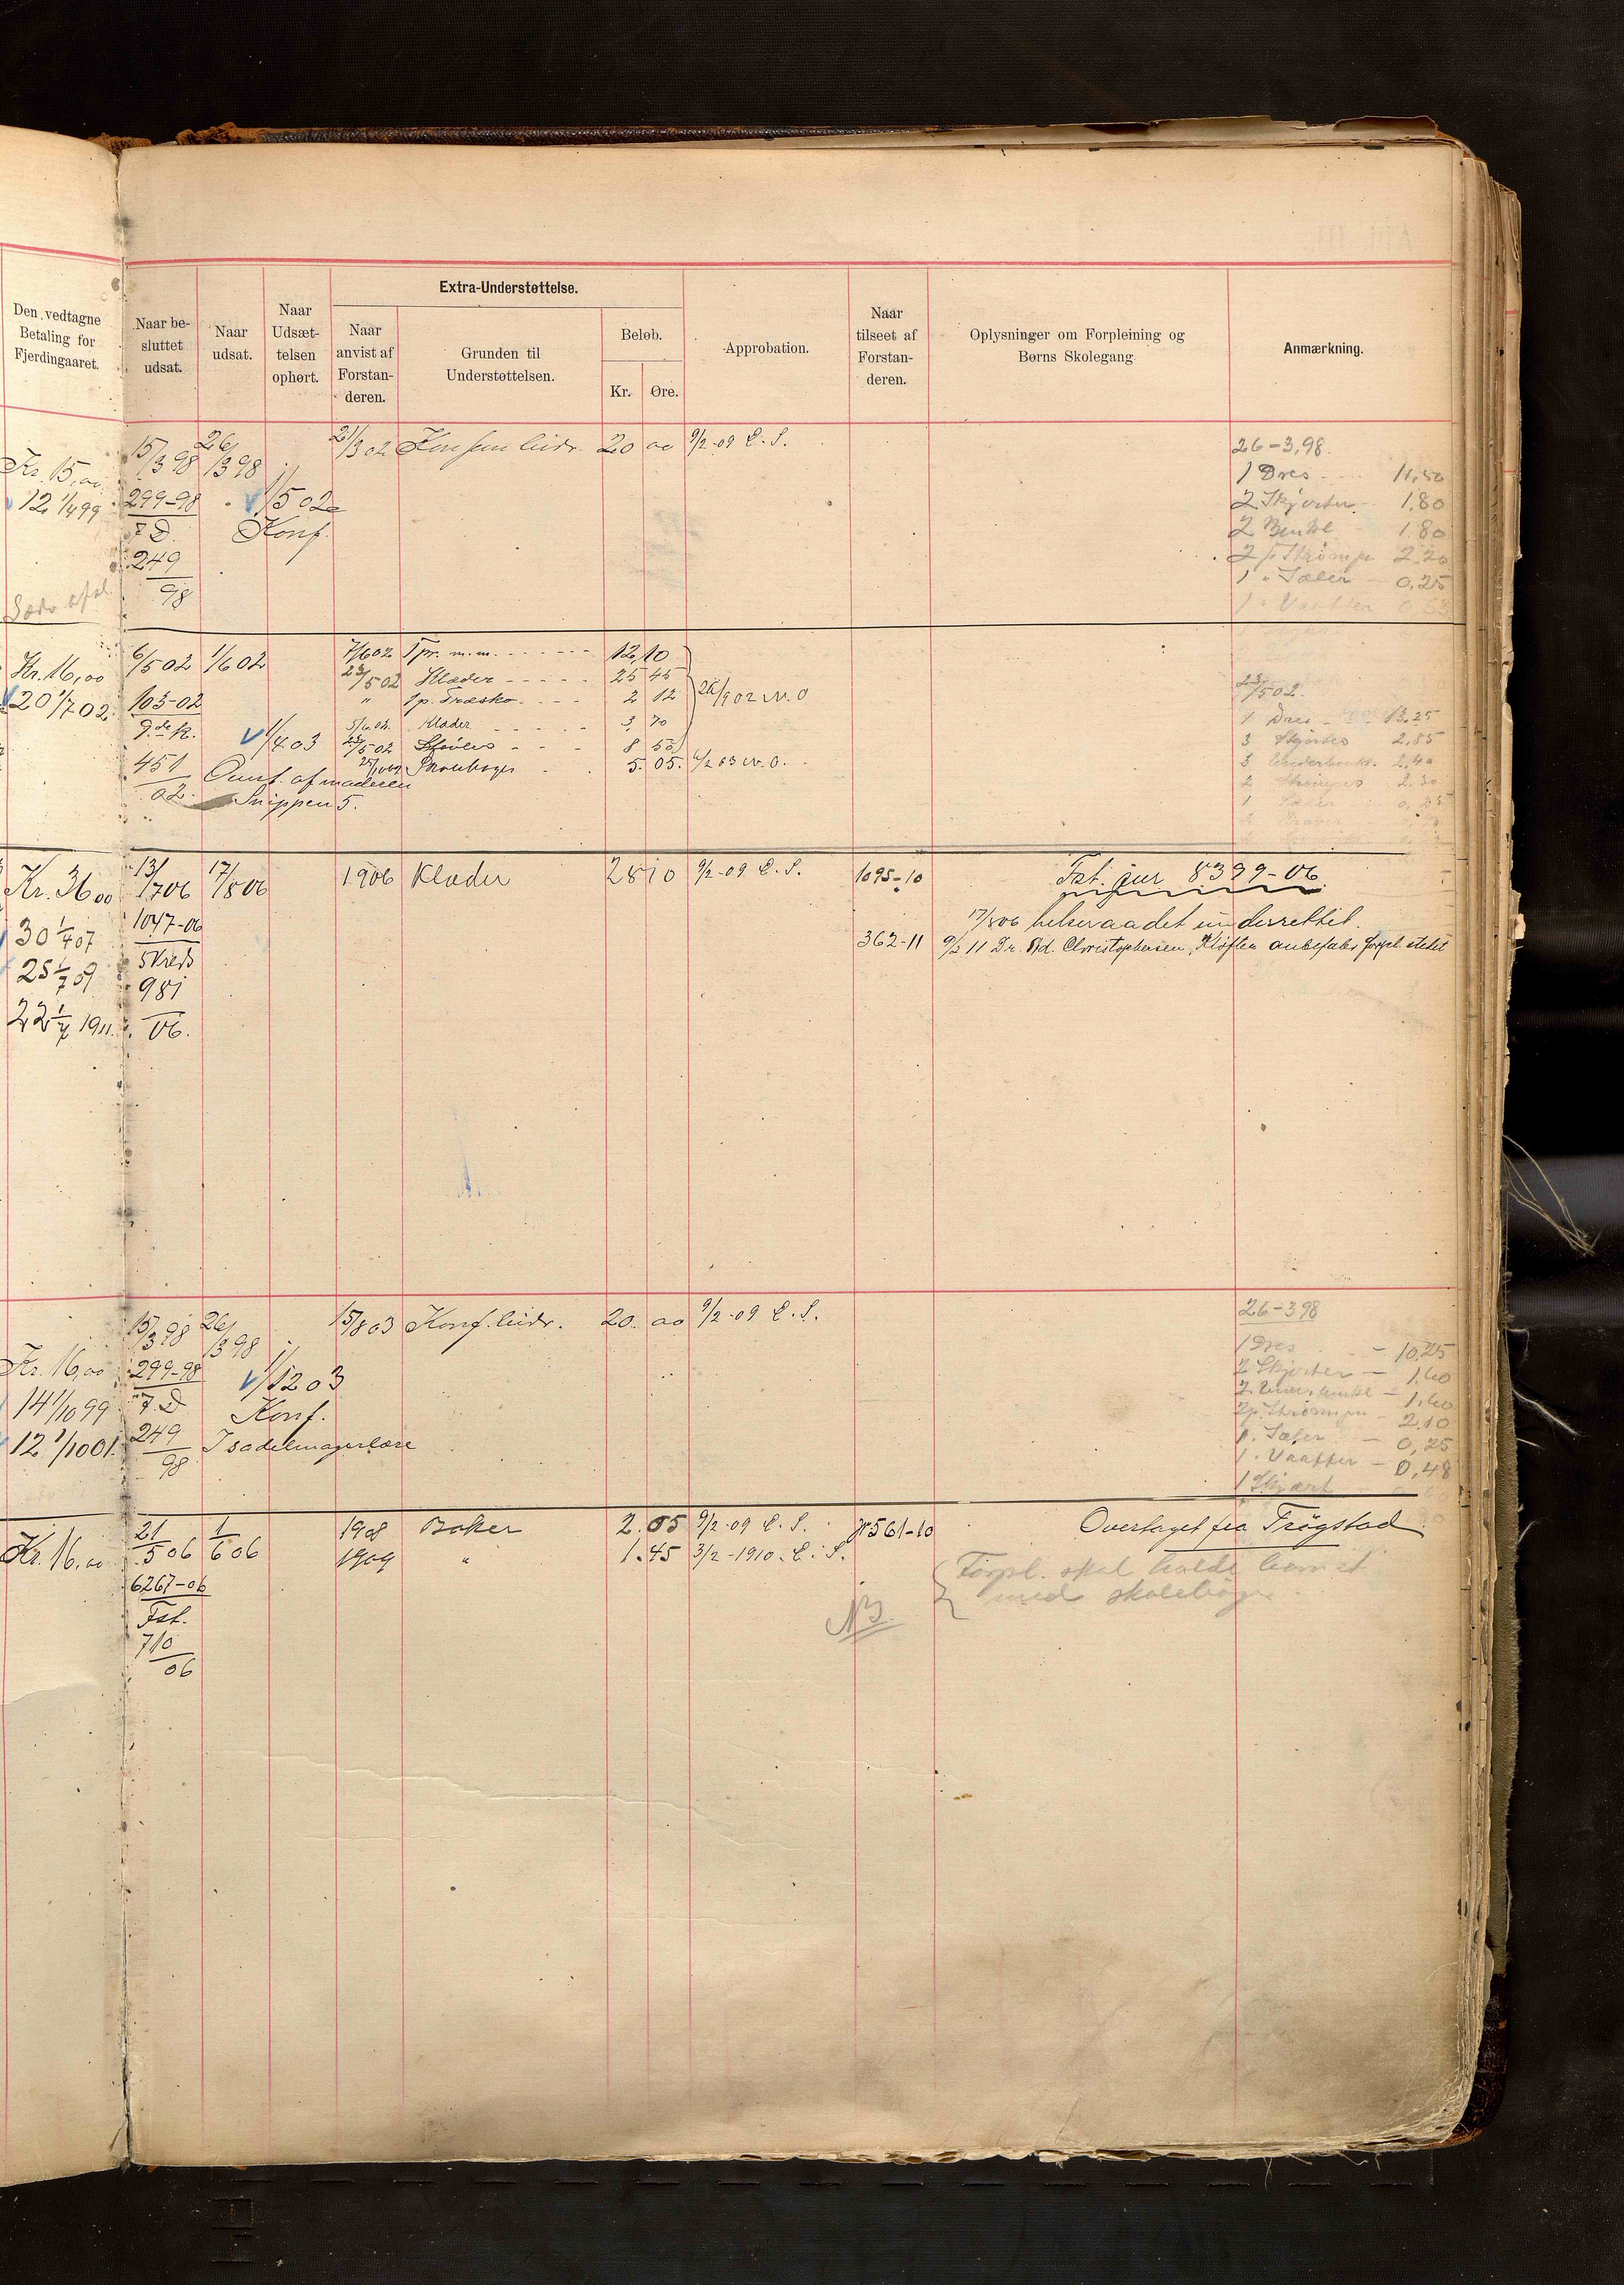 Extra-Understøttelse.
Den vedtagne
Betaling for
Fjerdingaaret.
Naar be-
sluttet
udsat.
Naar
udsat.
Naar
Udsæt-
telsen
ophørt.
Naar
anvist af
Forstan-
deren.
Grunden til
Understøttelsen.
Beløb.
Kr.
Øre.
Approbation.
Naar
tilseet af
Forstan-
deren.
Oplysninger om Forpleining og
Børns Skolegang
Anmærkning.
Kr. 15,00
12 1/4 99
15/3 98
299-98
7 D.
249
98
26/3 98
1/5 02
Konf.
21/3 02
20 00
9/2-09 E. S.
26-3,98.
1 Dres 11,50
2 Skjorter 1.80
2 Benkl 1.80
2 p Strømper 2,20
1 " Sæler 0,25
1 " Vaatter
Kr. 16,00
20 1/7 02
6/5 02
103-02
9de k.
451
02.
1/6 02
1/4 03
Snippen 5.
7/6 02 1 pr. m.m. 12 10
23/5 02 Klæder 25 45
" 1 p. Træsko 2 12
5/6 02. Klæder 3 70
23/5 02 Støvler 8 50
Skolebøger 5. 05.
26/9 02 N. O
6/2 03 N. O.
23/5 02.
1 Dres 13,25
3 Skjorter 2,85
3 Underbenkl. 2,40
2 Strømper 2,30
1 Sæler 0,25
Kr. 36 00
30 1/4 07
25 1/7 09
22 1/4 1911.
13/7 06
1047-06
5 Kreds
981
06.
17/8 06
1906 Klæder 28 10 9/2-09 E. S.
1095-10
Fat. jur 8399-06.
17/8 06 helseraadet underrettet.
362-11
9/3 11 Dr. Ad. Christophersen, Kløften anbefaler forpl. stedet
Kr. 16,00
14 1/10 99
12 1/10 01.
15/3 98
299-98
7. D
249
98
26/3 98
1/12 03
Konf.
I sadelmagerlære
15/8 03 Konf. Livr. 20. 00 9/2-09 E. S.
26-3 98
1 Dres 10,25
2 Skjorter 1,60
2 Underbenkl 1,60
2 p. Strømper 2,10
1 p. Sæler 0,25
1 . Vaatter 0,48
1 Skjært
Kr. 16,00
21/5 06
6267-06
Fat.
710
06
1/6 06
1908 Bøker 2. 05 9/2-09 E. S.
1909 " 1. 45 3/2-1910. E. S.
N 561-10
Overtaget fra Trøgstad
Forpl. skal holde barnet
med skolebøger
NB.